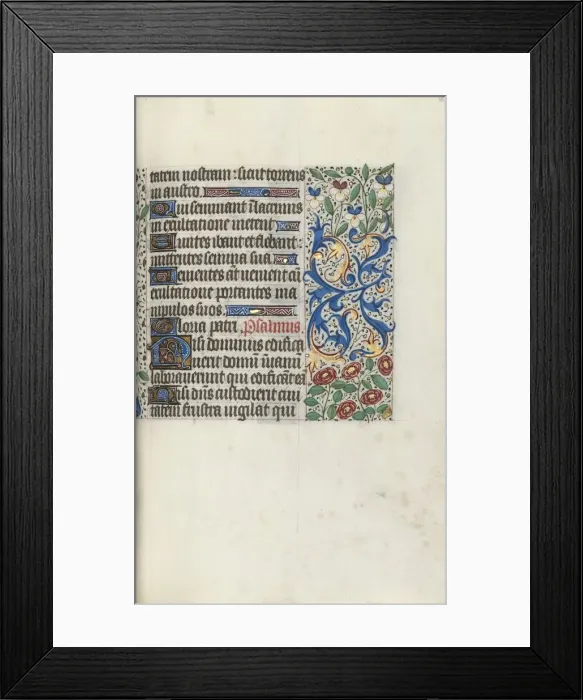 tatem nostram : sicut torrens
in austro.
Qui seminant i lacrimis
in exultatione metent.
Euntes ibant et flebant:
mittentes semina sua.
Venientes at venient i
exultatione portantes ma
nipulos suos.
Gloria patri. Psalmus.
Nisi dominus edifica
verit domu i vanu
laboraverunt qui edificat ea
Nisi dns custodierit civi
tatem frustra vigilat qui